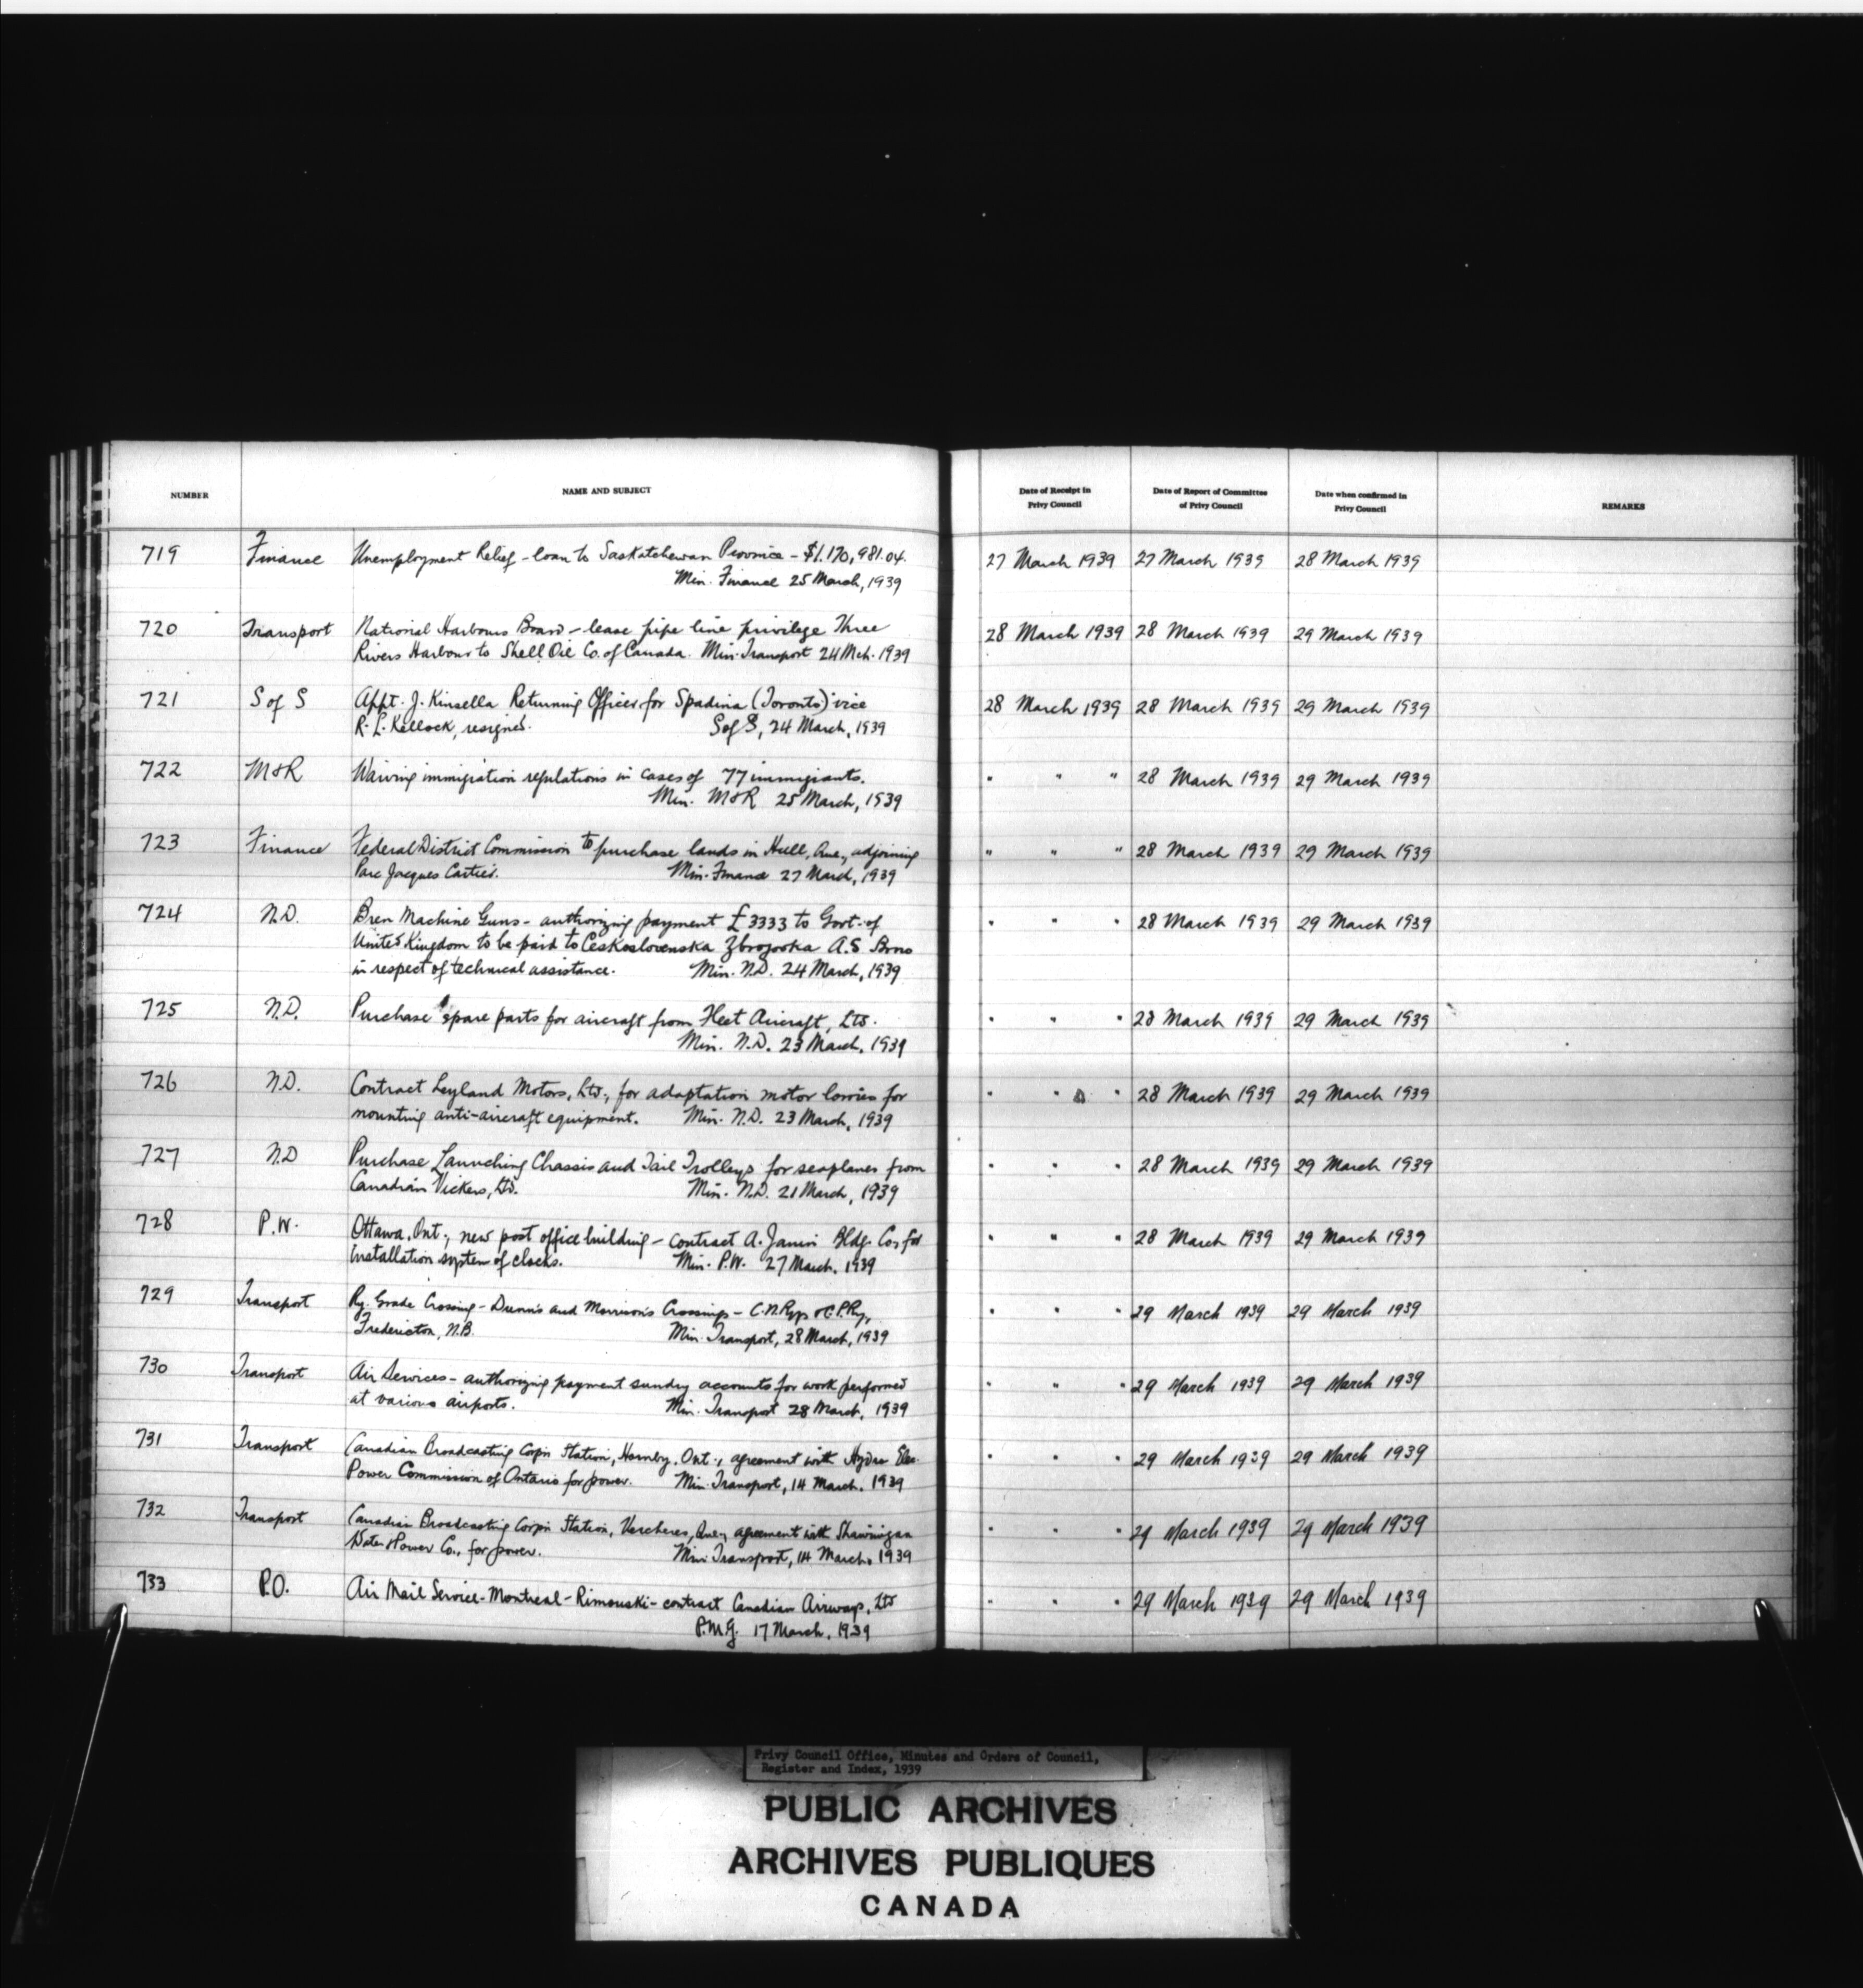 NUMBER NAME AND SUBJECT Date of Receipt in Privy Council Date of Report of Committee of Privy Council Date when confirmed in Privy Council REMARKS
719 Finance Unemployment Relief - loan to Saskatchewan Province - $1,170,981.04. 27 March 1939 27 March 1939 28 March 1939
Min. Finance 25 March, 1939
720 Transport National Harbours Board - lease pipe line privilege Three 28 March 1939 28 March 1939 29 March 1939
Rivers Harbour to Shell Oil Co. of Canada. Min. Transport 24 Mch. 1939
721 S of S Appt. J. Kinsella Returning Officer for Spadina (Toronto) vice 28 March 1939 28 March 1939 29 March 1939
R. L. Kellock, resigned. S of S, 24 March, 1939
722 M&R Waiving immigration regulations in cases of 77 immigrants. " " " 28 March 1939 29 March 1939
Min. M&R 25 March, 1939
723 Finance Federal District Commission to purchase lands in Hull, Que., adjoining " " " 28 March 1939 29 March 1939
Parc Jacques Cartier. Min. Finance 27 March, 1939
724 N.D. Bren Machine Guns - authorizing payment £3333 to Govt. of " " 28 March 1939 29 March 1939
United Kingdom to be paid to Ceskoslovenska Zbrojovka A.S. Brno
in respect of technical assistance. Min. N.D. 24 March, 1939
725 N.D. Purchase spare parts for aircraft from Fleet Aircraft, Ltd. " " " 28 March 1939 29 March 1939
Min. N.D. 23 March, 1939
726 N.D. Contract Leyland Motors, Ltd., for adaptation motor lorries for " " " 28 March 1939 29 March 1939
mounting anti-aircraft equipment. Min. N.D. 23 March, 1939
727 N.D Purchase Launching Chassis and Tail Trolleys for seaplanes from " " " 28 March 1939 29 March 1939
Canadian Vickers, Ltd. Min. N.D. 21 March, 1939
728 P.W. Ottawa, Ont., new post office building - contract A. Janin Bldg. Co., for " " " 28 March 1939 29 March 1939
installation system of clocks. Min. P.W. 27 March, 1939
729 Transport Ry. Grade Crossing - Dunn's and Morrison's Crossings - C.N.Rys & C.P.Ry, " " " 29 March 1939 29 March 1939
Fredericton, N.B. Min. Transport, 28 March, 1939
730 Transport Air Services - authorizing payment sundry accounts for work performed " " " 29 March 1939 29 March 1939
at various airports. Min. Transport 28 March, 1939
731 Transport Canadian Broadcasting Corp'n Station, Hornby, Ont., agreement with Hydro Elec. " " " 29 March 1939 29 March 1939
Power Commission of Ontario for power. Min. Transport, 14 March, 1939
732 Transport Canadian Broadcasting Corp'n Station, Vercheres, Que., agreement with Shawinigan " " " 29 March 1939 29 March 1939
Water & Power Co., for power. Min. Transport, 14 March, 1939
733 P.O. Air Mail Service - Montreal - Rimouski - contract Canadian Airways, Ltd " " " 29 March 1939 29 March 1939
P.M.G. 17 March, 1939
Privy Council Office, Minutes and Orders of Council,
Register and Index, 1939
PUBLIC ARCHIVES
ARCHIVES PUBLIQUES
CANADA